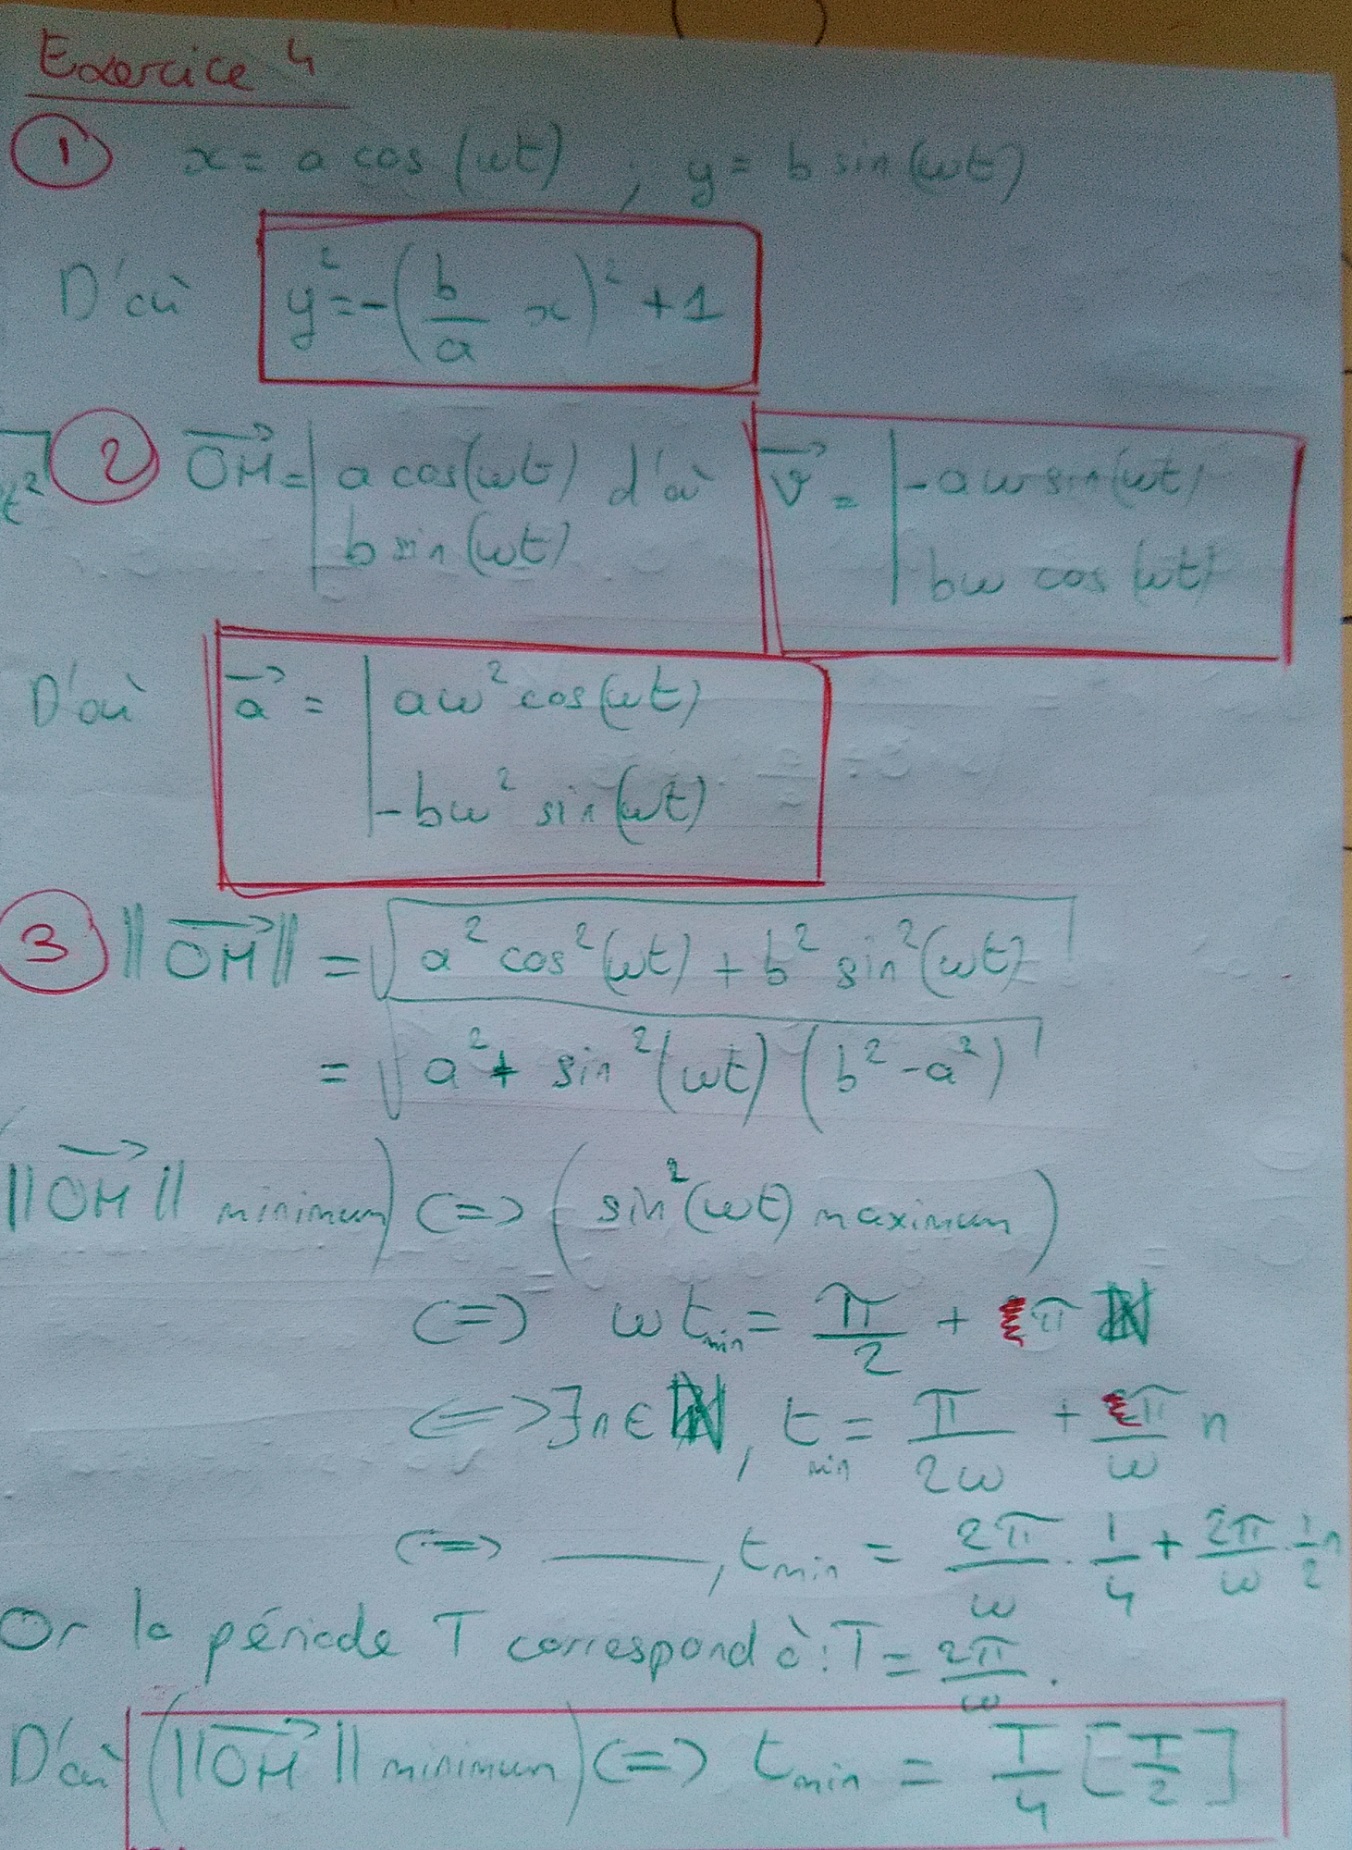 Exercice 4
① x = a cos (ωt) ; y = b sin (ωt)
D'où y² = -(b/a x)² + 1
② OM→ = | a cos(ωt) d'où v→ = | -aω sin(ωt)
b sin(ωt) bω cos(ωt)
D'où a→ = | aω² cos(ωt)
-bω² sin(ωt)
③ ||OM→|| = √(a² cos²(ωt) + b² sin²(ωt))
= √(a² + sin²(ωt) (b² - a²))
||OM→|| minimum) <=> (sin²(ωt) maximum)
<=> ω t_min = π/2 + π ℕ
<=> ∃n∈ℕ, t_min = π/2ω + π/ω n
<=> ——, t_min = 2π/ω . 1/4 + 2π/ω . 1/2 n
Or la période T correspond à : T = 2π/ω .
D'où (||OM→|| minimum) <=> t_min = T/4 [T/2]